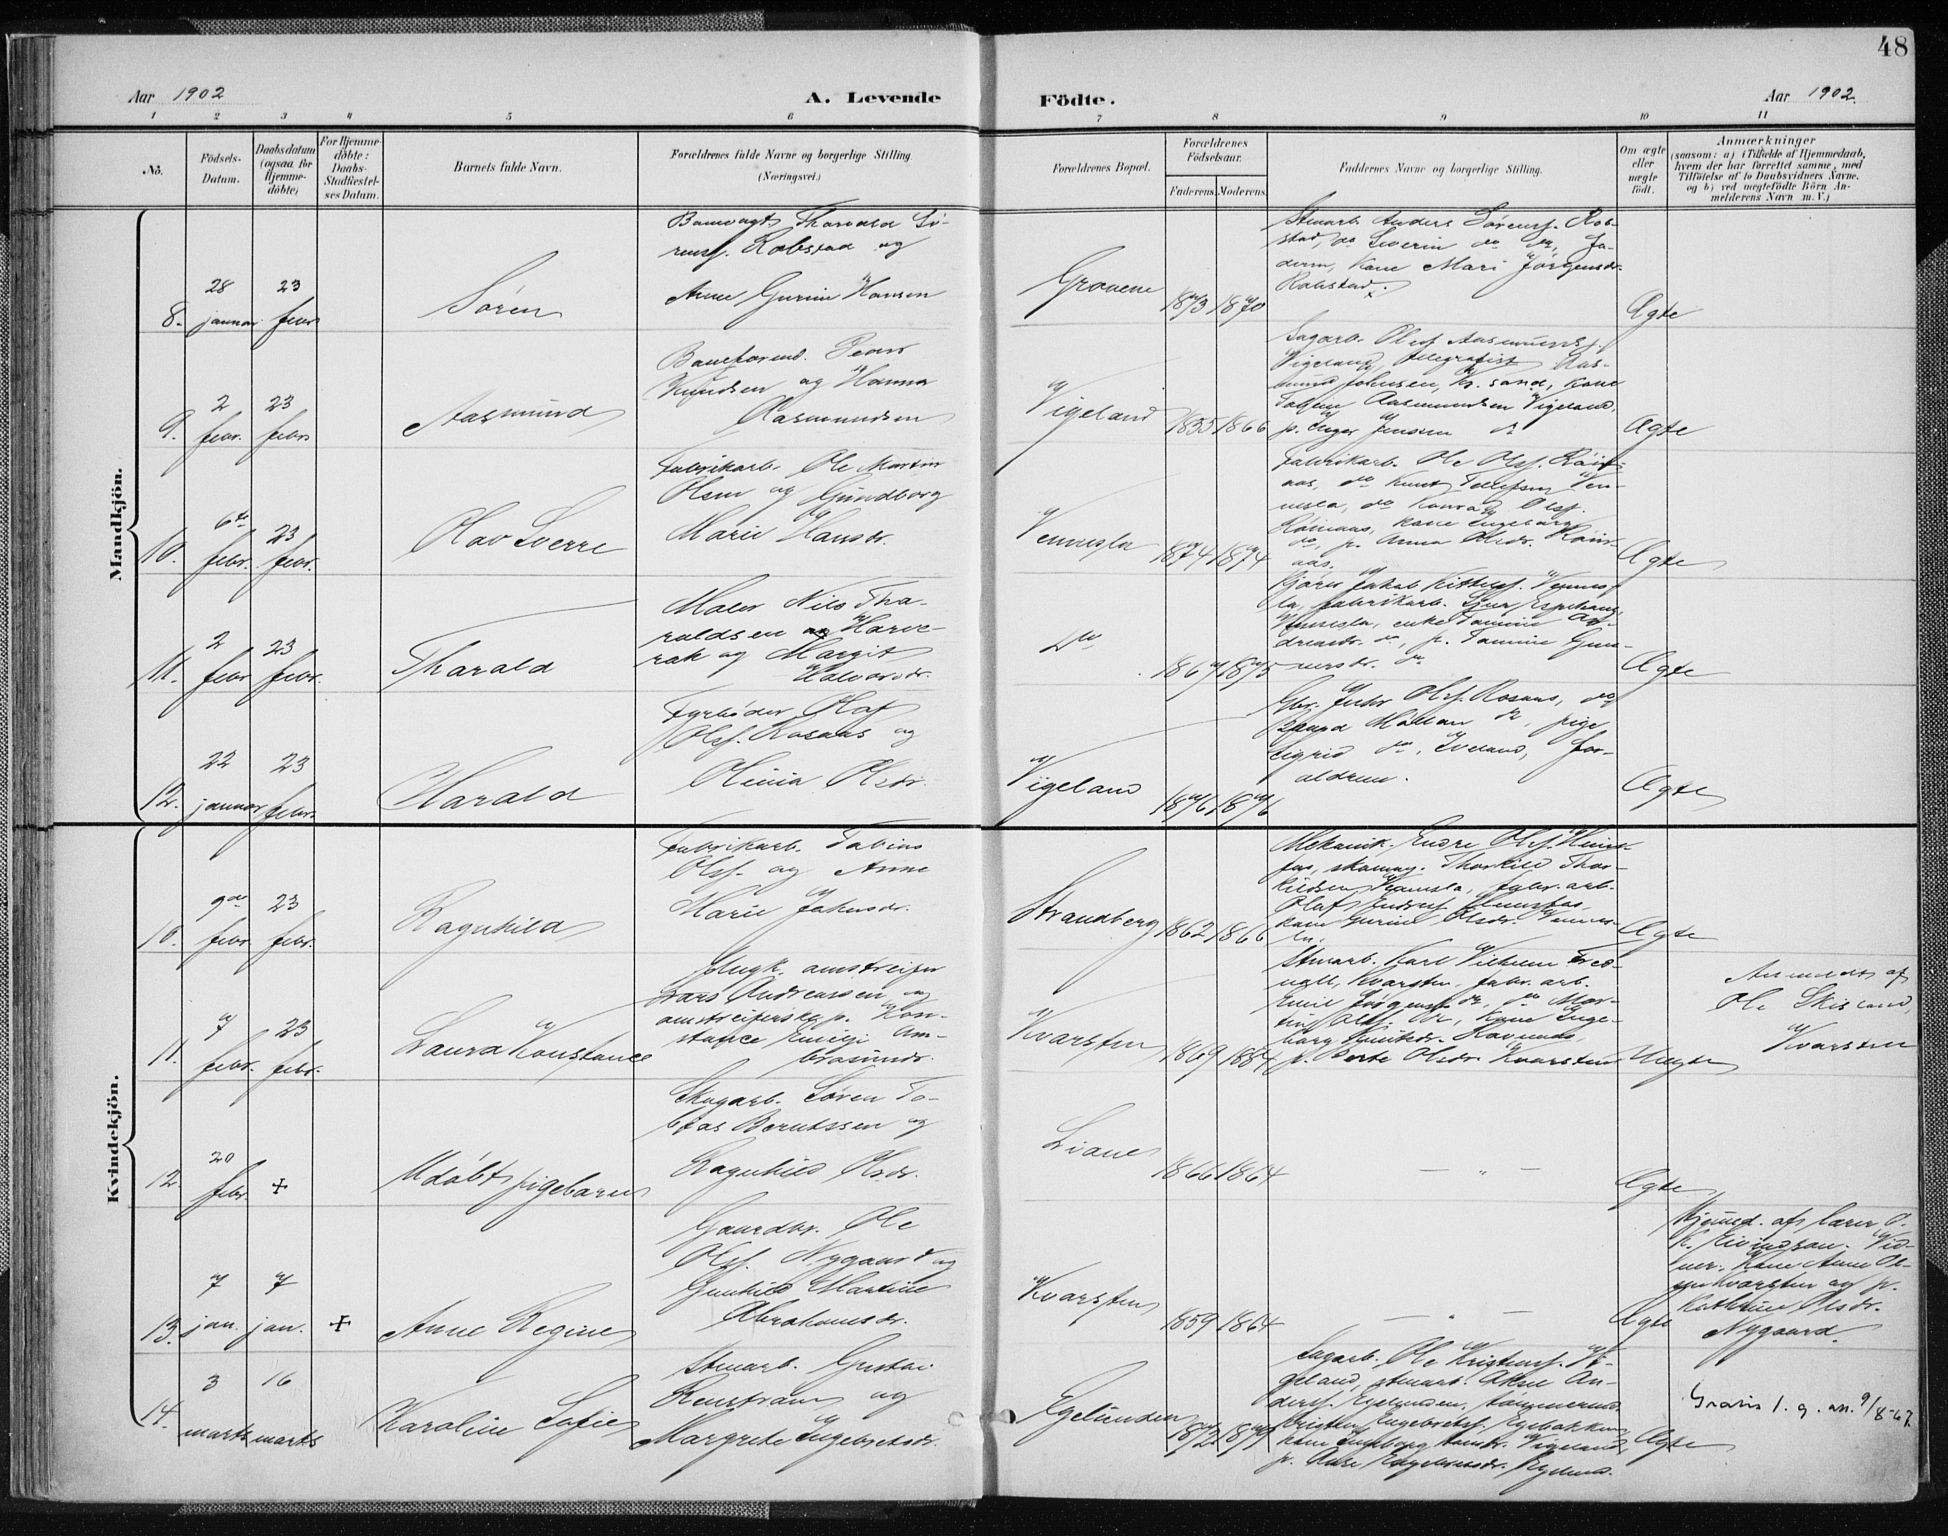 48
Aar 1902
A. Levende
Födte.
Aar 1902.
1 2 3 4 5 6 7 8 9 10 11
No.
Födsels-
Datum.
Daabsdatum
(ogsaa for
Hjemme-
döbte)
For Hjemme-
döbte:
Daabs-
Stadfæstel-
ses Datum.
Barnets fulde Navn.
Forældrenes fulde Navne og borgerlige Stilling.
(Næringsvei.)
Forældrenes Bopæl.
Forældrenes
Födselsaar.
Faderens. Moderens.
Faddernes Navne og borgerlige Stilling.
Om ægte
eller
uægte
født.
Anmærkninger
(saasom: a) i Tilfælde af Hjemmedaab,
hvem der har forrettet samme, med
Tilföielse af to Daabsvidners Navne,
og b) ved uægtefödte Börn An-
melderens Navn m. V.)
Mandkjön.
8.
28
januar
23
febr
Sören
Banevagt Tharald Sö-
rensf. Robstad og
Anne Gurine Hansen
Grovene
1873 1870
Stuarb. Anders Sørensf. Rob-
stad, do Severin do do, Fa-
deren, kone Mari Jørgensdr.
Robstad.
Ægte
9.
2
febr.
23
febr
Aasmund
Baneformd. Peder
Knudsen og Hanna
Aasmundsen
Vigeland
1855 1866
Sagarb. Olaf Aasmundsf.
Vigeland, telegrafist Aas-
mund Johnsen, Kr.sand, kone
Aasmundsen Vigeland,
p. Inger Jensen do
Ægte
10.
6te
febr.
23
febr.
Olav Sverre
Fabrikarb. Ole Martin
Olsen og Gundborg
Marie Hansdr.
Vennesla
1874 1874
Fabrikarb. Ole Olsf.
aas, do Knut Tellefsen Ven-
nesla, do Konrad Olsf.
kone Ingeborg
do, p. Anna Olsdr.
aas.
Ægte
11.
2
febr
23
febr.
Tharald
Maler Nils Tha-
raldsen Harve-
rak og Margit
Halvorsdr.
Do
1867 1875
Jakob Kittelsf. Vennes-
la, fabrikarb.
Vennesla, enke Tomine An-
dreasdr. do, p. Tomine Gun-
nersdr. do
Ægte
12.
22
januar
23
febr.
Harald
Fyrbøder Olaf
Olsf. Rosaas og
Olivia Olsdr.
Vigeland
1876 1876
Gbr. Olsf. Rosaas, do
do, pige
Sigrid do, Iveland, For-
ældrene.
Ægte
Kvindekjön.
10.
9de
febr.
23
febr.
Ragnhild
Fabrikarb. Tobias
Olsf. og Anne
Marie Jakobsdr.
Strandberg
1862 1866
Mekanik. Endre Olsf.
Thorkild Thor-
kildsen Vennesla, fabr.arb.
Olaf Endresf.
kone Gurine Olsdr. Vennes-
la.
Ægte
11.
7
febr.
23
febr.
Laura Konstance
Ungk. amstreifer
Lars Andreassen og
amstreiferske p. Kon-
stance Emilie Am-
brosiusdr.
Kvarsten
1869 1884
Stuarb. Karl Vilhelm
Kvarsten, fabr.arb.
Emil Jørgensf. do, do Mar-
tin Olsf. do, kone Inge-
borg Knutsdr.
p. Berte Olsdr. Kvarsten
Uægte
Anmeldt af
Ole Skisland,
Kvarsten
12.
20
febr.
+
Udøbt pigebarn
Skogarb. Søren To-
bias Berntssen og
Ragnhild Olsdr.
Liane
1866 1864
— " —
Ægte
13.
7
jan.
7
jan.
+
Anne Regine
Gaardbr. Ole
Olsf. Nygaard og
Gunhild Martine
Abrahamsdr.
Kvarsten
1859 1864
— " —
Ægte
Hjemmed. af lærer O.
K. Eivindson. Vid-
ner: Kone Anne Ol-
sen Kvarsten og p.
Kathrine Olsdr.
Nygaard.
14.
3
marts
16
marts
Karoline Sofie
Stuarb. Gustav
Renstrøm og
Margrete Ingebretsdr.
Egelunden
1872 1879
Sagarb. Ole Kristensf. Vi-
geland, stuarb. Aksel An-
dersf. Egelunden,
Kristen Engebretsf.
kone Ingeborg Vigeland
p. Anne
Ægte
Gratis l. g. att. 9/8-67.